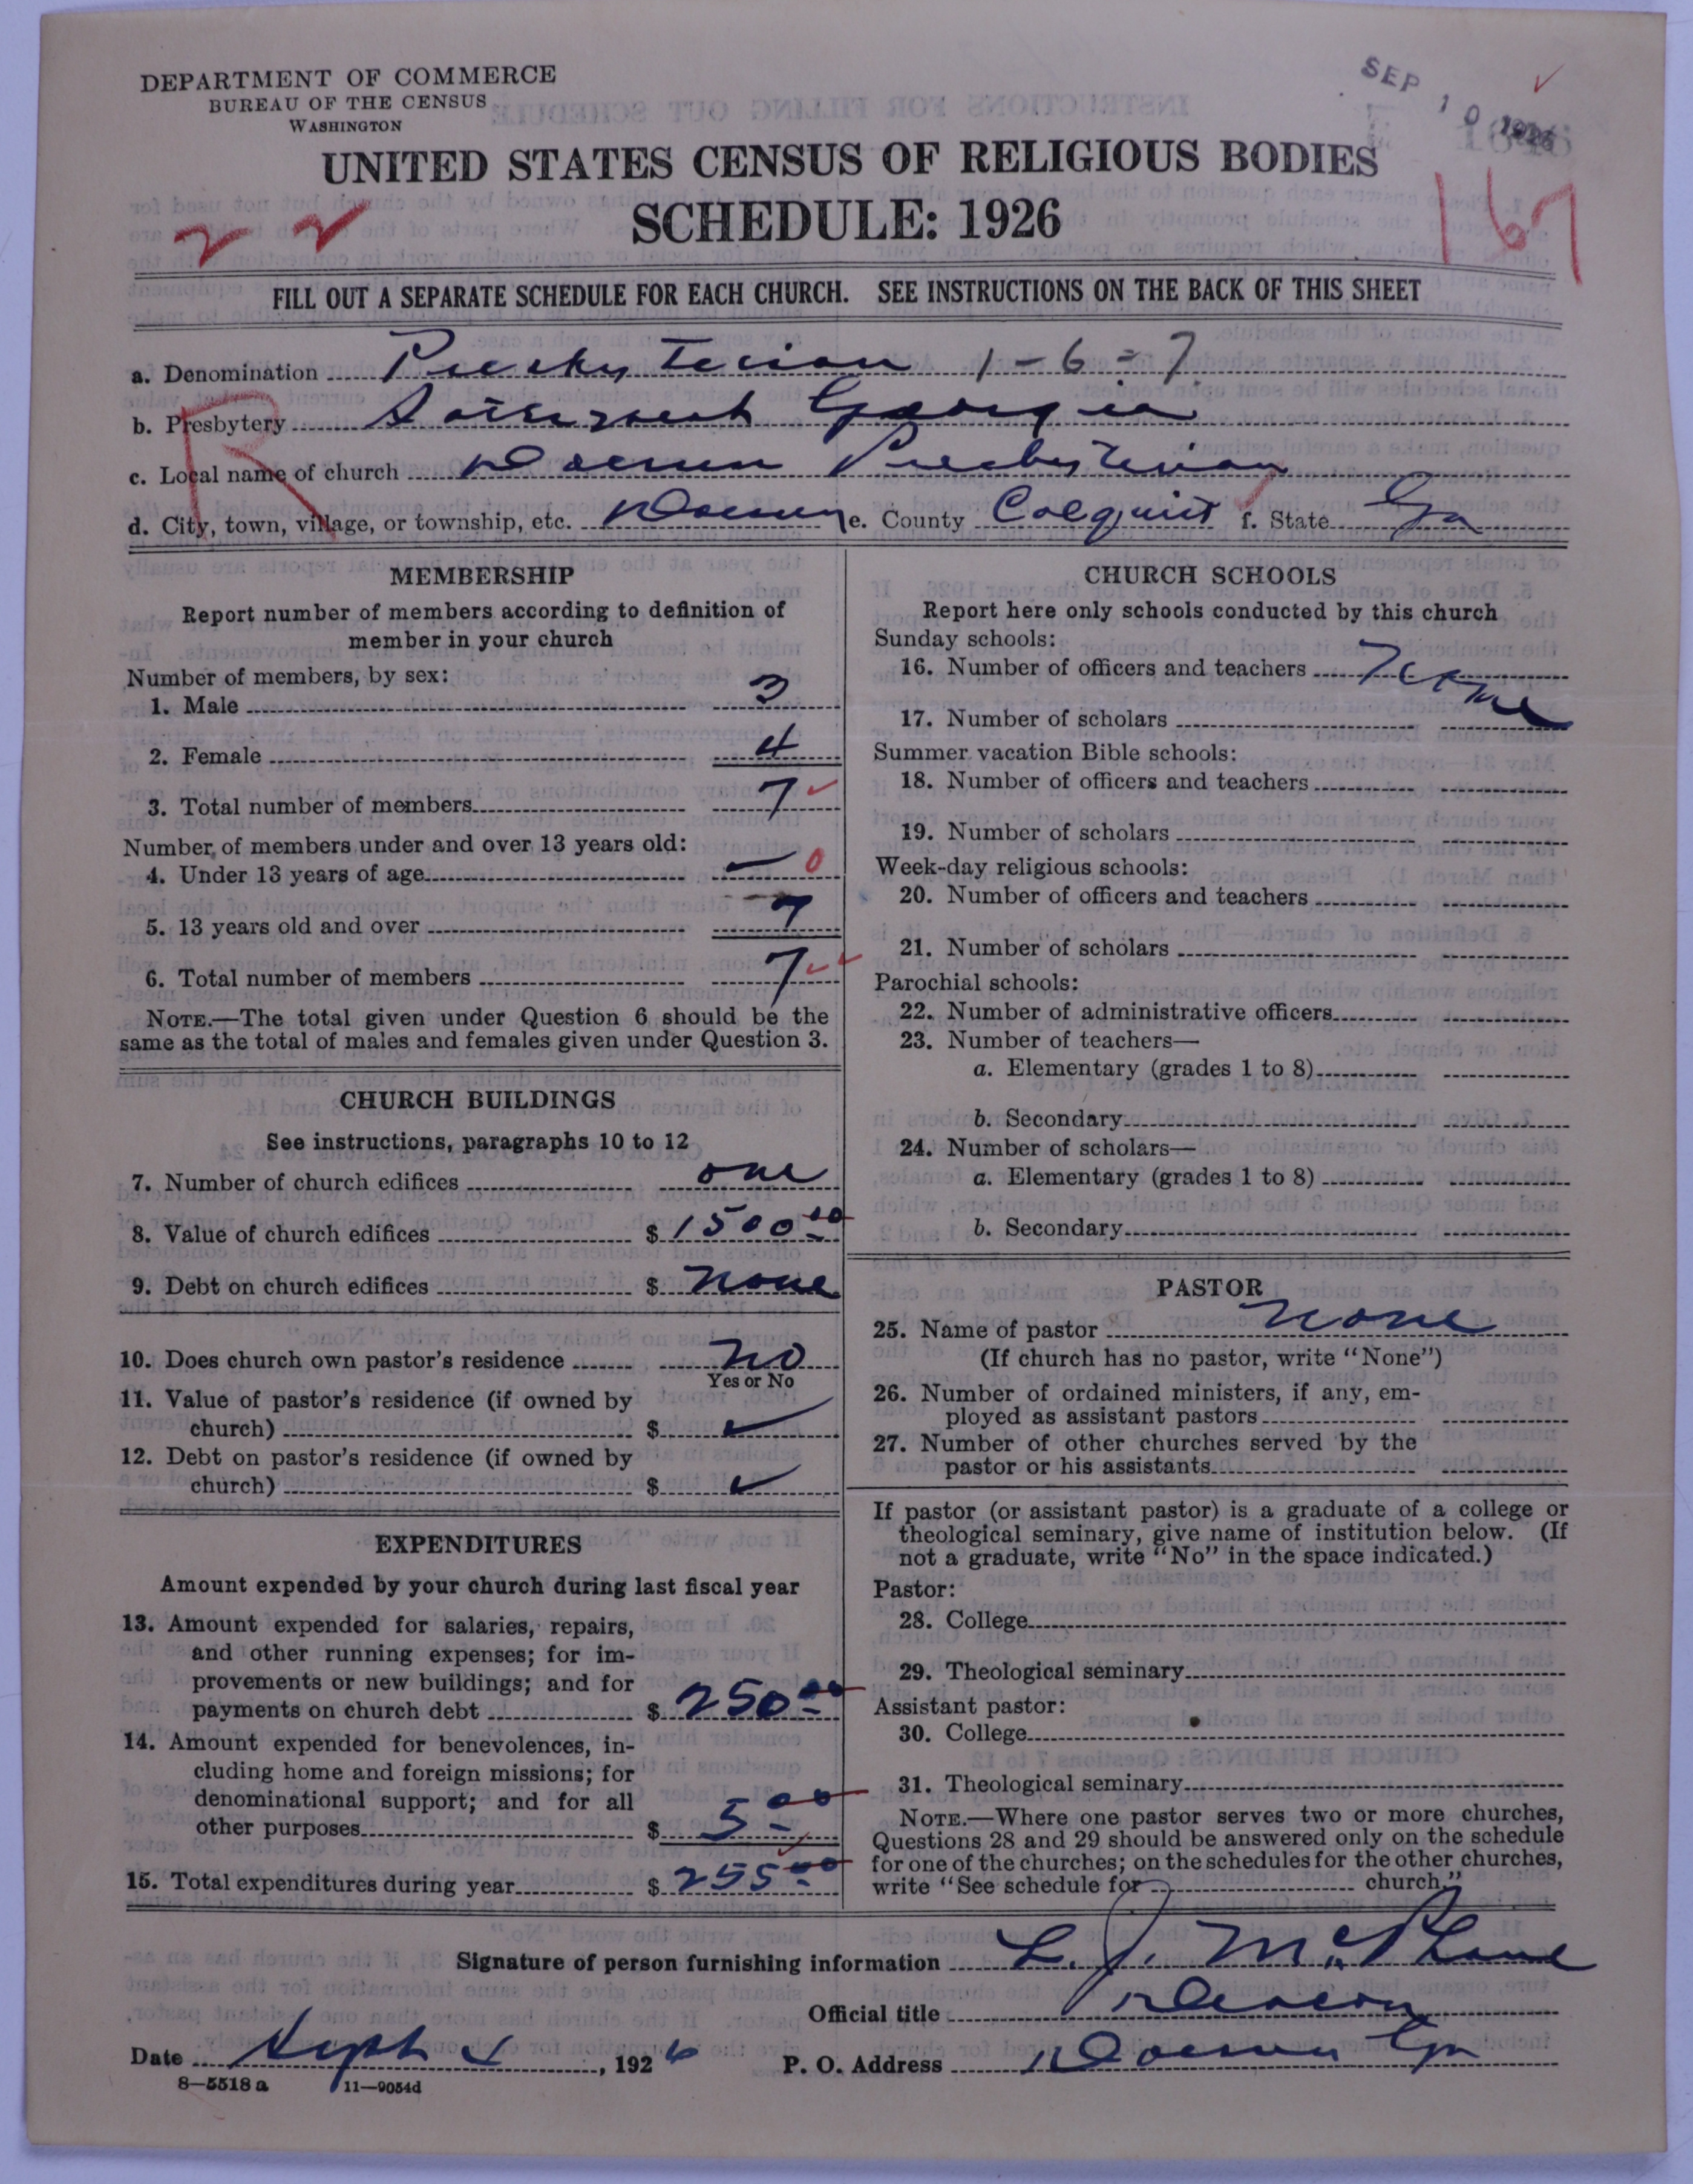 DEPARTMENT OF COMMERCE
BUREAU OF THE CENSUS
WASHINGTON
SEP 10 1926
UNITED STATES CENSUS OF RELIGIOUS BODIES
SCHEDULE: 1926
2 2
167
FILL OUT A SEPARATE SCHEDULE FOR EACH CHURCH. SEE INSTRUCTIONS ON THE BACK OF THIS SHEET
a. Denomination Presbyterian 1-6=7
b. Presbytery Southwest Georgia
R
c. Local name of church Doerun Presbyterian
d. City, town, village, or township, etc. Doerun e. County Colquitt f. State Ga
MEMBERSHIP
Report number of members according to definition of
member in your church
Number of members, by sex:
1. Male 3
2. Female 4
3. Total number of members 7
Number of members under and over 13 years old:
4. Under 13 years of age — 0
5. 13 years old and over 7
6. Total number of members 7
NOTE.—The total given under Question 6 should be the
same as the total of males and females given under Question 3.
CHURCH BUILDINGS
See instructions, paragraphs 10 to 12
7. Number of church edifices one
8. Value of church edifices $ 1500 00
9. Debt on church edifices $ none
10. Does church own pastor's residence no
Yes or No
11. Value of pastor's residence (if owned by
church) $ ✓
12. Debt on pastor's residence (if owned by
church) $ ✓
EXPENDITURES
Amount expended by your church during last fiscal year
13. Amount expended for salaries, repairs,
and other running expenses; for im-
provements or new buildings; and for
payments on church debt $ 250 00
14. Amount expended for benevolences, in-
cluding home and foreign missions; for
denominational support; and for all
other purposes $ 5 00
15. Total expenditures during year $ 255 00
CHURCH SCHOOLS
Report here only schools conducted by this church
Sunday schools:
16. Number of officers and teachers None
17. Number of scholars
Summer vacation Bible schools:
18. Number of officers and teachers
19. Number of scholars
Week-day religious schools:
20. Number of officers and teachers
21. Number of scholars
Parochial schools:
22. Number of administrative officers
23. Number of teachers—
a. Elementary (grades 1 to 8)
b. Secondary
24. Number of scholars—
a. Elementary (grades 1 to 8)
b. Secondary
PASTOR
25. Name of pastor none
(If church has no pastor, write "None")
26. Number of ordained ministers, if any, em-
ployed as assistant pastors
27. Number of other churches served by the
pastor or his assistants
If pastor (or assistant pastor) is a graduate of a college or
theological seminary, give name of institution below. (If
not a graduate, write "No" in the space indicated.)
Pastor:
28. College
29. Theological seminary
Assistant pastor:
30. College
31. Theological seminary
NOTE.—Where one pastor serves two or more churches,
Questions 28 and 29 should be answered only on the schedule
for one of the churches; on the schedules for the other churches,
write "See schedule for church."
Signature of person furnishing information L. J. McPhaul
Official title Deacon
Date Sept , 1926 P. O. Address Doerun Ga
8—5518 a 11—9054d